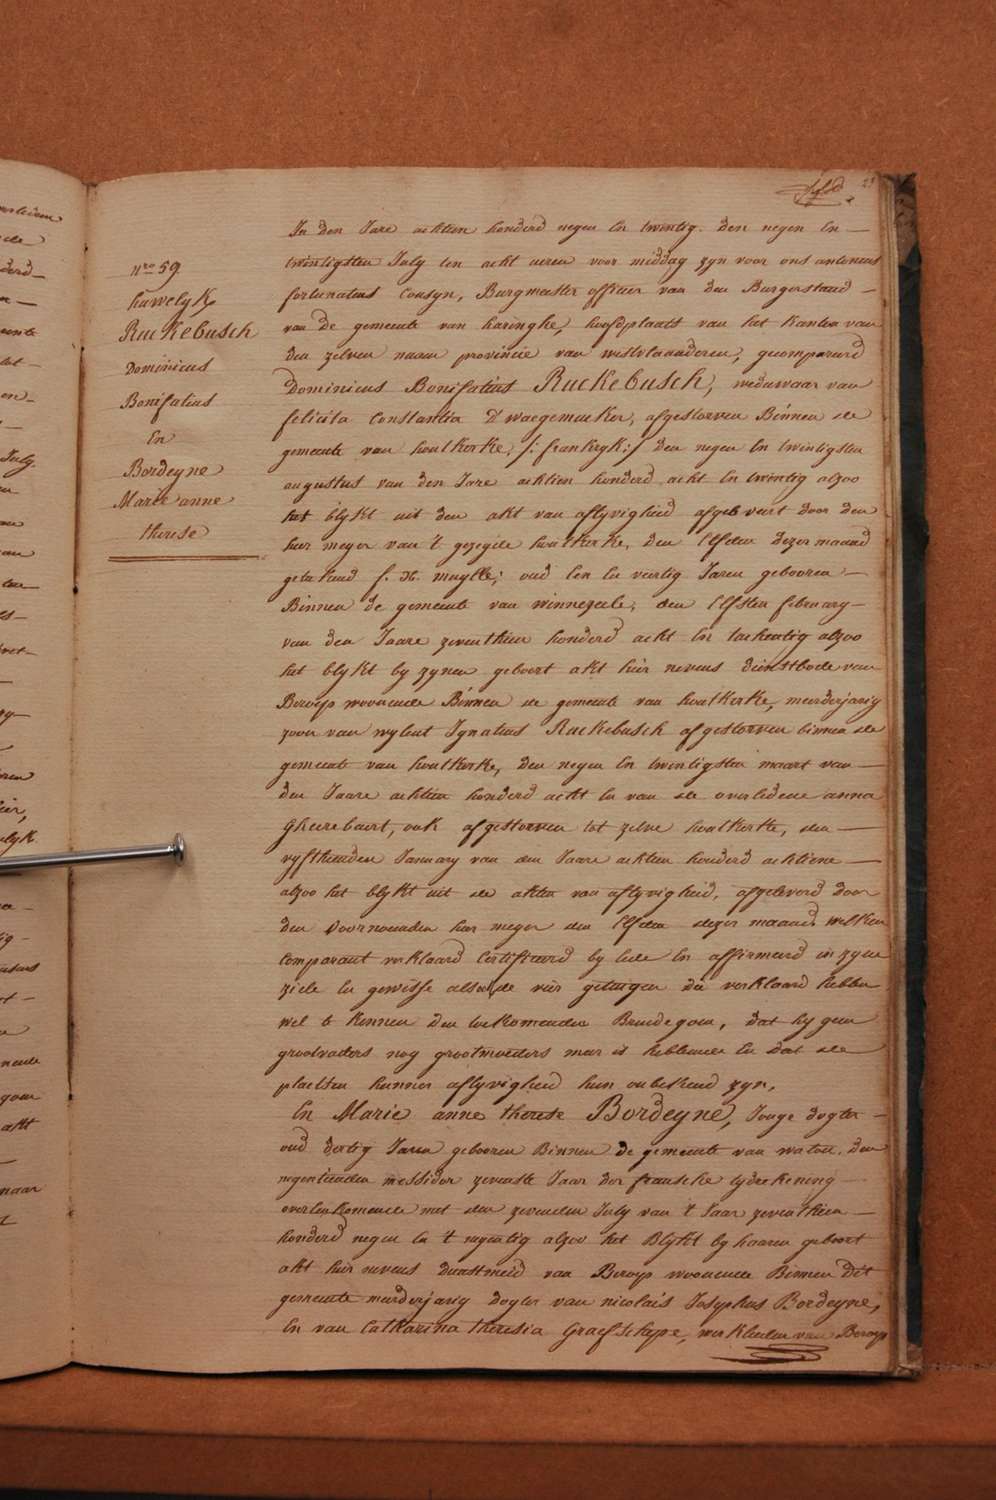 23
Nro 59
huwelyk
Ruckebusch
Dominicus
Bonifatius
En
Bordeyne
Marie anne
therese
In den Jare achtien honderd negen En twintig den negen En
twintigsten July ten acht uren voor middag zyn voor ons antonius
fortunatus Cousyn, Burgmeester officier van den Burgerstand
van de gemeente van haringhe, hoofdplaats van het kanton van
den zelven naem provincie van westvlaanderen, gecompareerd
Dominicus Bonifatius Ruckebusch, weduwaar van
felicita Constantia D'waegemaeker, afgestorven Binnen de
gemeente van houtkerke /: frankryk :/ den negen En twintigsten
augustus van den Jare achtien honderd acht En twintig alzoo
het blykt uit den akt van aflyvigheid afgelevert door den
heer meyer van 't gezegde houtkerke, den Elfden dezer maand
getekend f. H. muylle; oud Een En veertig Jaren gebooren
Binnen de gemeente van winnezeele, den Elfsten february
van den Jaare zeventhien honderd acht En tachentig alzoo
het blykt by zynen geboort akt hier nevens dienstbode van
Beroep woonende Binnen de gemeente van houtkerke, meerderjarig
zoon van wylent Ignatius Ruckebusch afgestorven binnen de
gemeente van houtkerke, den negen En twintigsten maart van
den Jaare achtien honderd acht En van de overledene anna
Gheerebaert, ook afgestorven tot zelve houtkerke, den
vyfthienden January van den Jaare achtien honderd achtiene
alzoo het blykt uit de akten van aflyvigheid, afgeleverd door
den voornoemden heer meyer den Elfden dezer maand welken
Comparant verklaard Certifieerd by Eede En affirmeerd in zyne
ziele En gewisse alsook de vier getuigen die verklaard hebben
wel te kennen den toekomenden Bruidegom, dat hy geen
grootvaders nog grootmoeders meer is hebbende En dat de
plaetsen hunner aflyvigheid hun onbekend zyn,
En Marie anne therese Bordeyne, Jonge dogter
oud dertig Jaren gebooren Binnen de gemeente van watou, den
negentienden messidor zevenste Jaar der fransche tydrekening
overeenkomende met den zevenden July van 't Jaar zeventhien
honderd negen En 't negentig alzoo het Blykt by haaren geboort
akt hier nevens dienstmeid van Beroep woonende Binnen dit
gemeente meerderjarig dogter van nicolais Josephus Bordeyne,
En van Catharina theresia Graefschepe, werklieden van Beroep